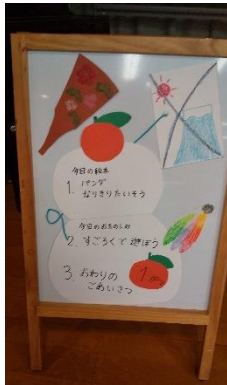 今日の絵本
1. パンダ
なりきりたいそう
今日のおたのしみ
2. すごろくで遊ぼう
3. おわりの
ごあいさつ